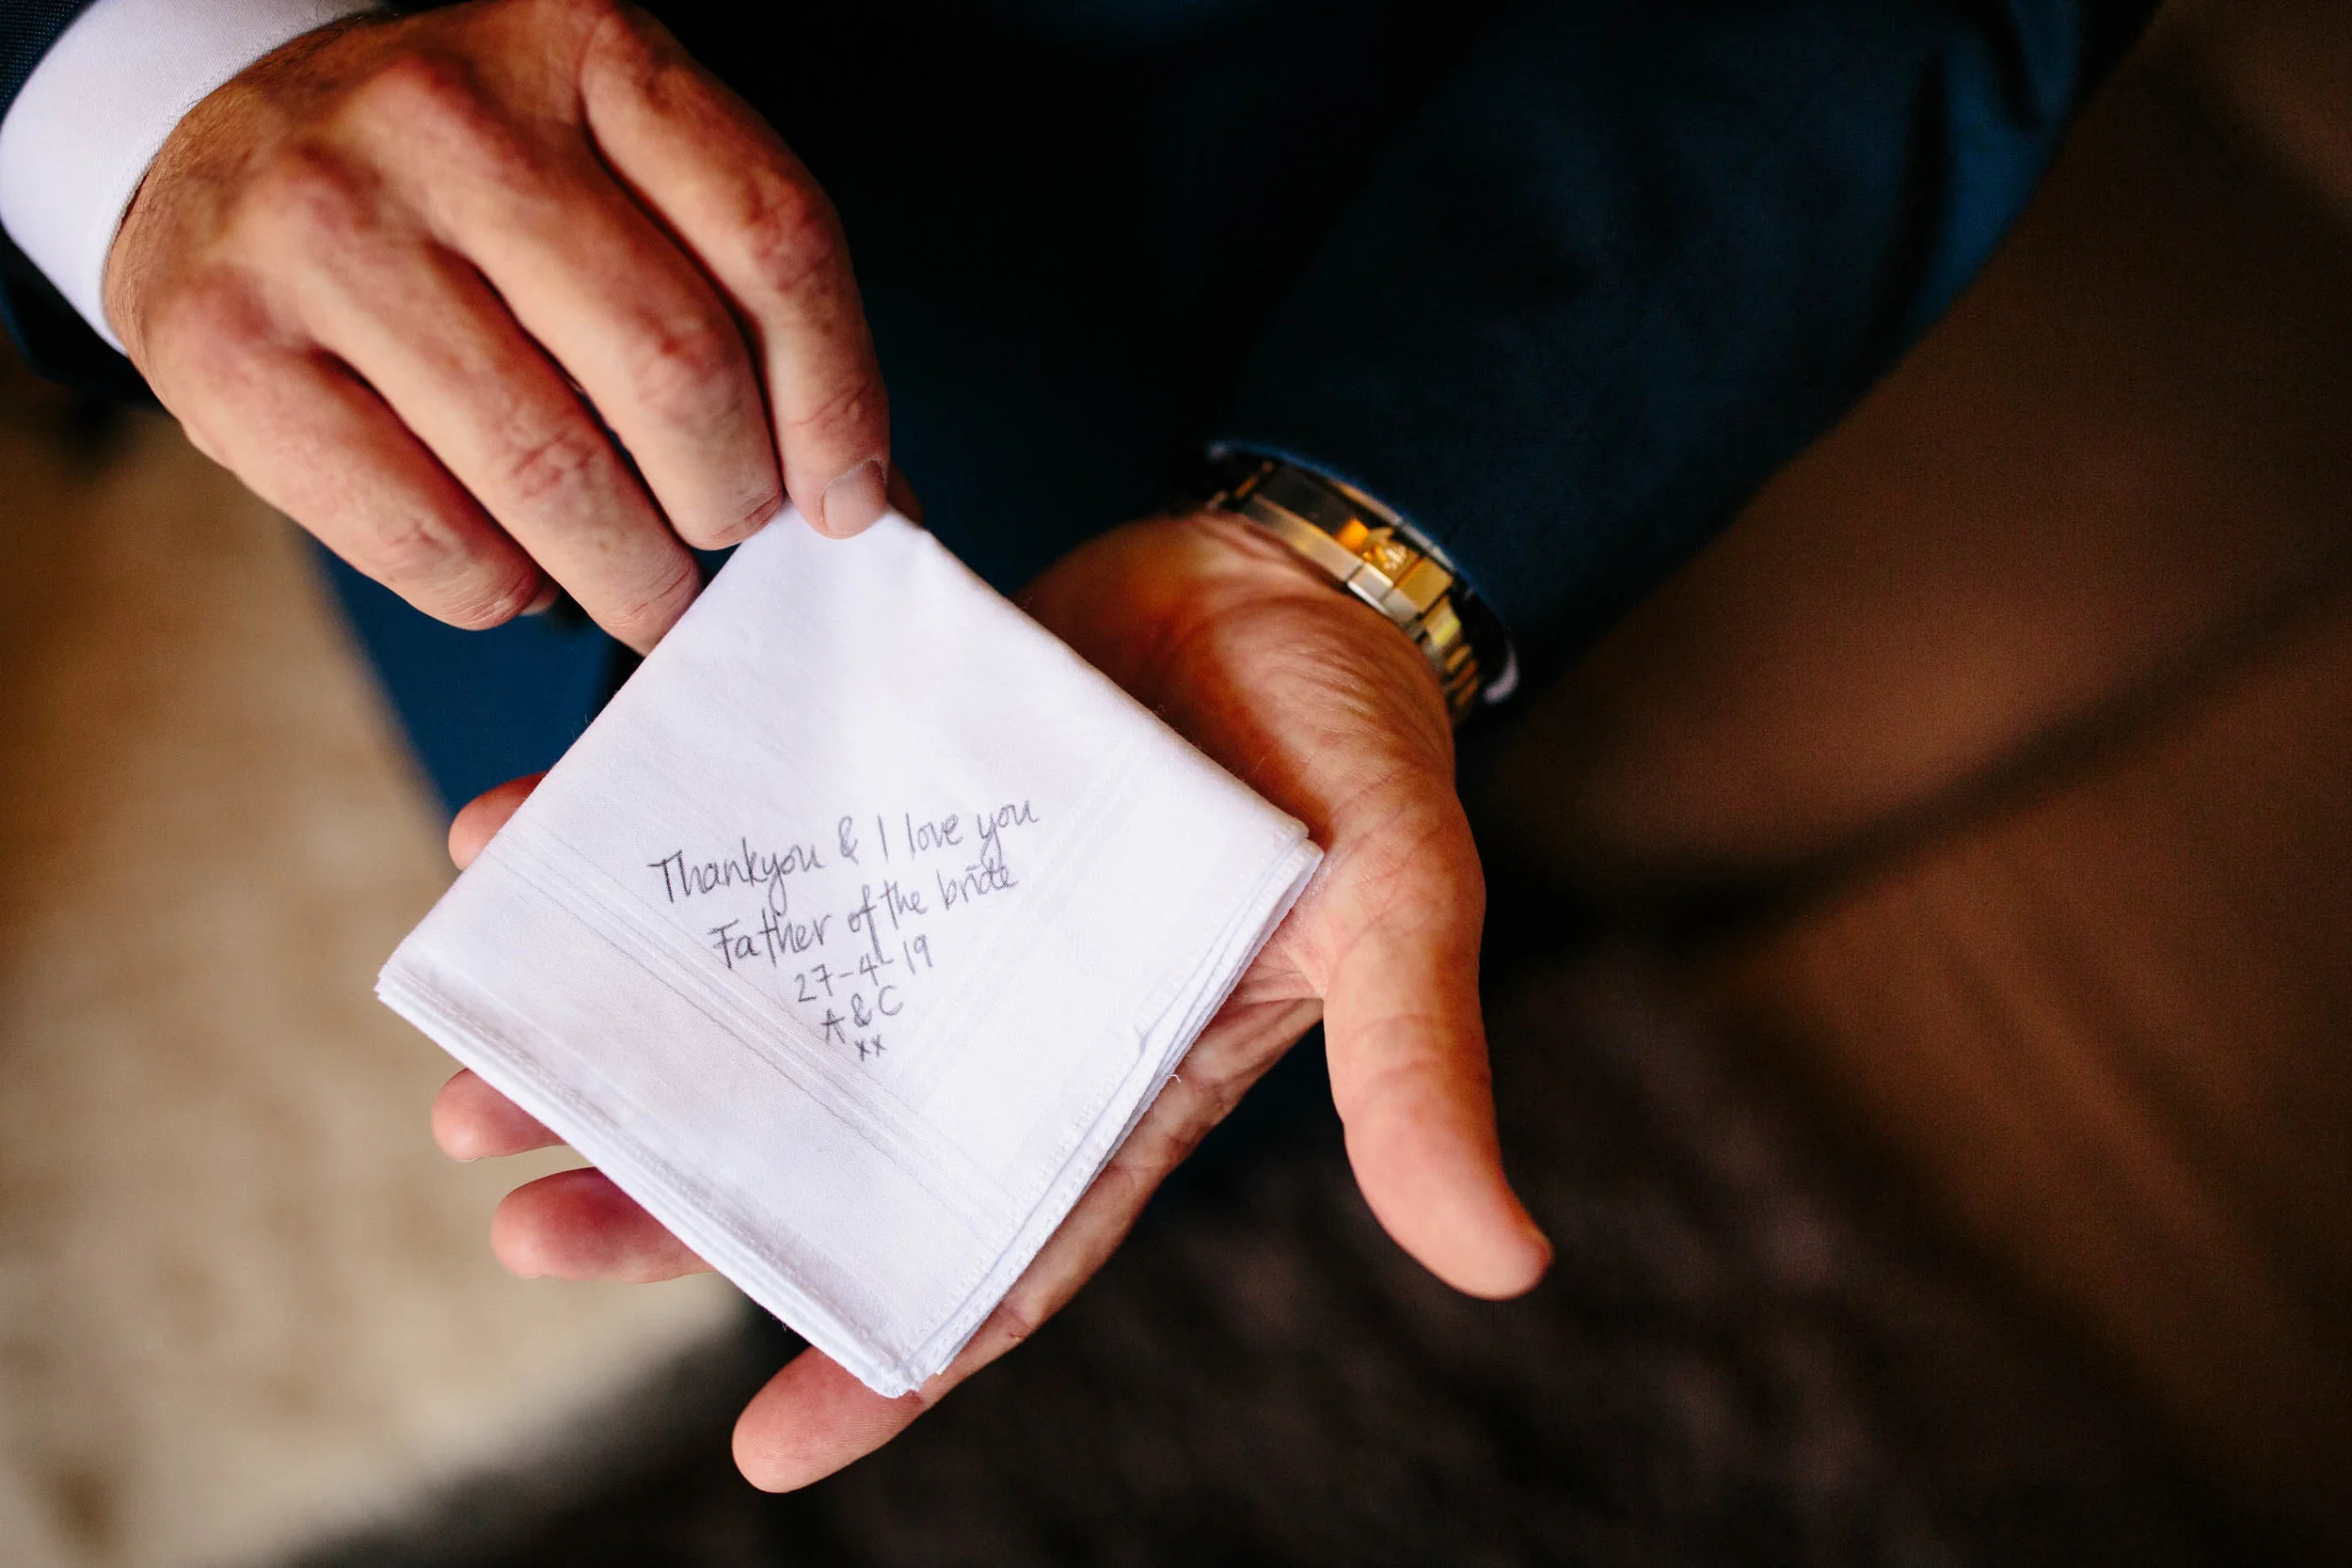 Thankyou & I love you
Father of the bride
27-4-19
A & C
xx